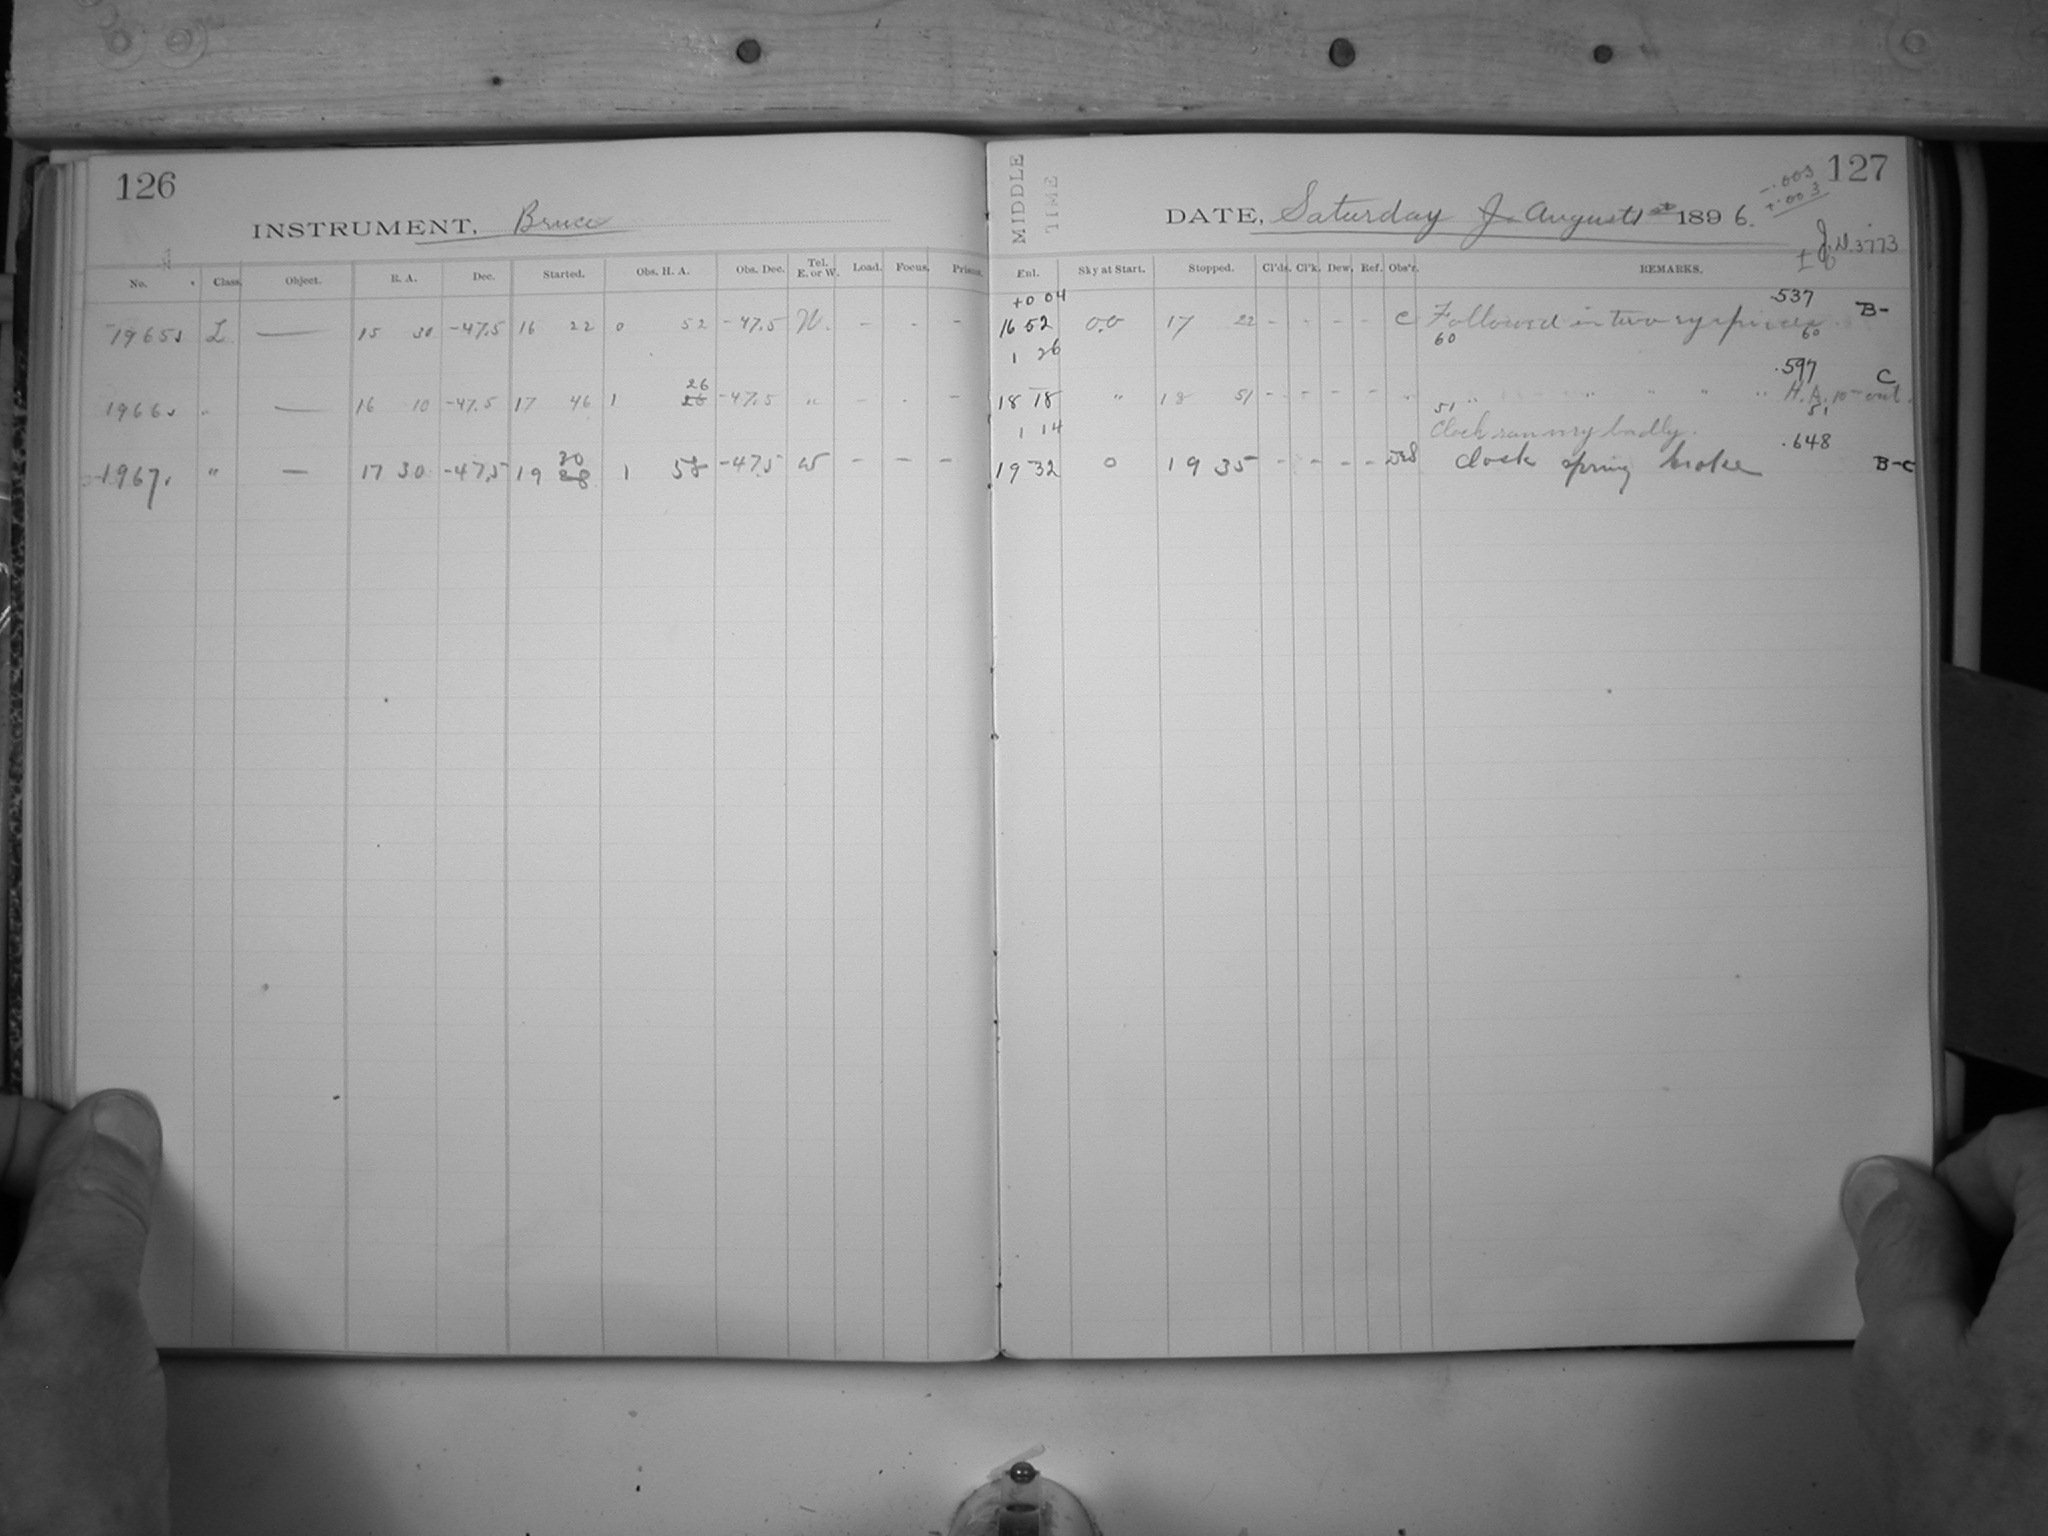 126
INSTRUMENT, Bruce
No. Class. Object. R. A. Dec. Started. Obs. H. A. Obs. Dec. Tel. E. or W. Load. Focus. Prisms.
1965s L — 15 30 -47.5 16 22 0 52 -47.5 W. - - -
26
1966s " — 16 10 -47.5 17 46 1 -47.5 " - - -
30
1967. " — 17 30 -47.5 19 28 1 58 -47.5 W - - -
MIDDLE TIME
127
-.003
+.003
DATE, Saturday August 1st 1896.
J.D. 3773
Enl. Sky at Start. Stopped. Cl'ds. Cl'k. Dew. Ref. Obs'r. REMARKS.
+0 04 .537
16 52 0.0 17 22 - - - - C Followed in two B-
60 60
1 26 .597
18 18 " 18 51 - - - - " " " " " " H.A. 10m out. C
51 51
1 14 Clock ran very badly. .648
19 32 0 19 35 - - - - clock spring broke B-C